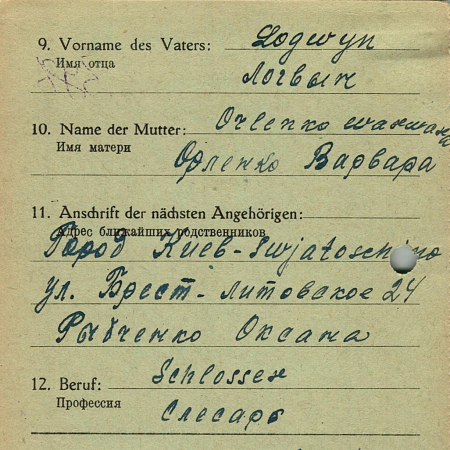 9. Vorname des Vaters: Logwyn
Имя отца Логвын
10. Name der Mutter: Orlenko Warwara
Имя матери Орленко Варвара
11. Anschrift der nächsten Angehörigen:
Адрес ближайших родственников
Город Киев - Swjatoschino
ул. Брест - Литовское 24
Рыбченко Оксана
12. Beruf: Schlosser
Профессия Слесарь